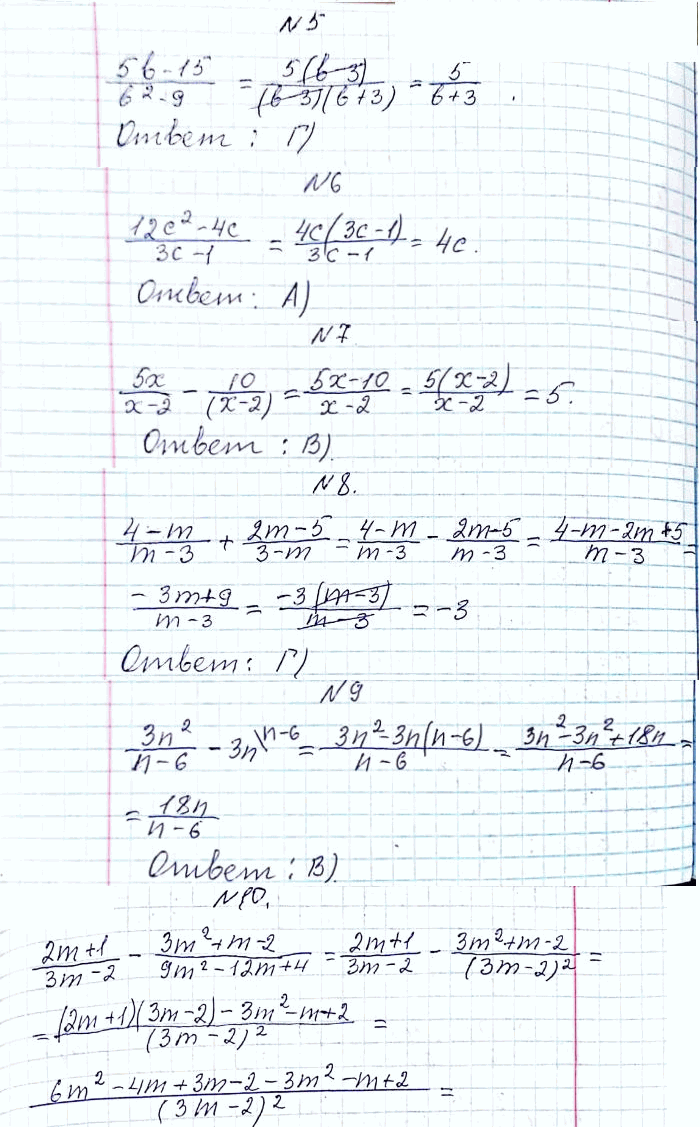 №5
(5b-15)/(b²-9) = 5(b-3)/((b-3)(b+3)) = 5/(b+3).
Ответ: Г)
№6
(12c²-4c)/(3c-1) = 4c(3c-1)/(3c-1) = 4c.
Ответ: А)
№7
5x/(x-2) - 10/(x-2) = (5x-10)/(x-2) = 5(x-2)/(x-2) = 5.
Ответ: В)
№8.
(4-m)/(m-3) + (2m-5)/(3-m) = (4-m)/(m-3) - (2m-5)/(m-3) = (4-m-2m+5)/(m-3) =
(-3m+9)/(m-3) = -3(m-3)/(m-3) = -3
Ответ: Г)
№9
3n²/(n-6) - 3n\n-6 = (3n²-3n(n-6))/(n-6) = (3n²-3n²+18n)/(n-6) =
= 18n/(n-6)
Ответ: В)
№10.
(2m+1)/(3m-2) - (3m²+m-2)/(9m²-12m+4) = (2m+1)/(3m-2) - (3m²+m-2)/(3m-2)² =
= ((2m+1)(3m-2)-3m²-m+2)/(3m-2)² =
(6m²-4m+3m-2-3m²-m+2)/(3m-2)² =